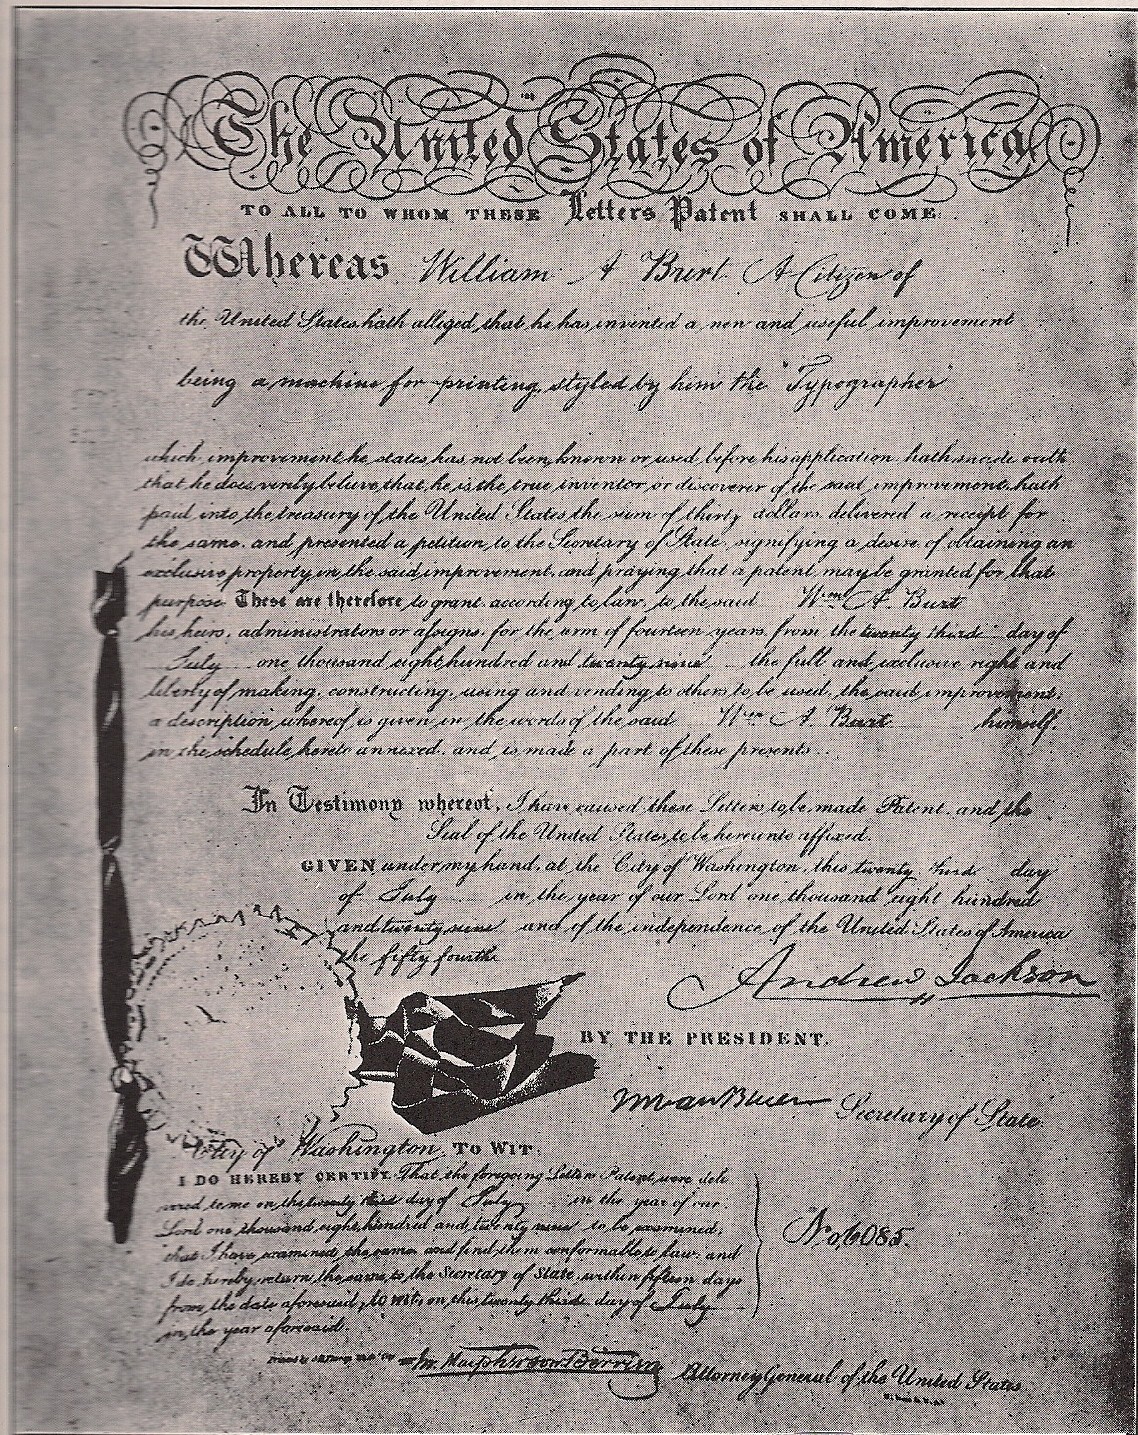 The United States of America
TO ALL TO WHOM THESE Letters Patent SHALL COME:
Whereas William A Burt A Citizen of
the United States hath alleged that he has invented a new and useful improvement
being a machine for printing, styled by him the "Typographer"
which improvement he states has not been known or used before his application hath made oath
that he does verily believe that he is the true inventor or discoverer of the said improvement hath
paid into the treasury of the United States the sum of thirty dollars delivered a receipt for
the same and presented a petition to the Secretary of State signifying a desire of obtaining an
exclusive property in the said improvement and praying that a patent may be granted for that
purpose. These are therefore to grant according to law, to the said Wm A. Burt
his heirs, administrators or assigns, for the term of fourteen years, from the twenty third day of
July one thousand eight hundred and twenty nine the full and exclusive right and
liberty of making, constructing, using and vending to others to be used, the said improvement,
a description whereof is given in the words of the said Wm A. Burt himself.
in the schedule hereto annexed, and is made a part of these presents.
In Testimony whereof, I have caused these Letters to be made Patent, and the
Seal of the United States to be hereunto affixed.
GIVEN under my hand, at the City of Washington, this twenty third day
of July in the year of our Lord one thousand eight hundred
and twenty nine and of the independence of the United States of America
the fifty fourth.
Andrew Jackson
BY THE PRESIDENT.
M van Buren Secretary of State.
City of Washington, TO WIT:
I DO HEREBY CERTIFY, That the foregoing Letters Patent, were deli
vered to me on the twenty third day of July in the year of our
Lord one thousand eight hundred and twenty nine to be examined,
that I have examined the same and find them conformable to law, and
I do hereby return the same to the Secretary of State, within fifteen days
from the date aforesaid, to wit, on this twenty third day of July
in the year aforesaid.
No. 6085.
Jn. Macpherson Berrien Attorney General of the United States.